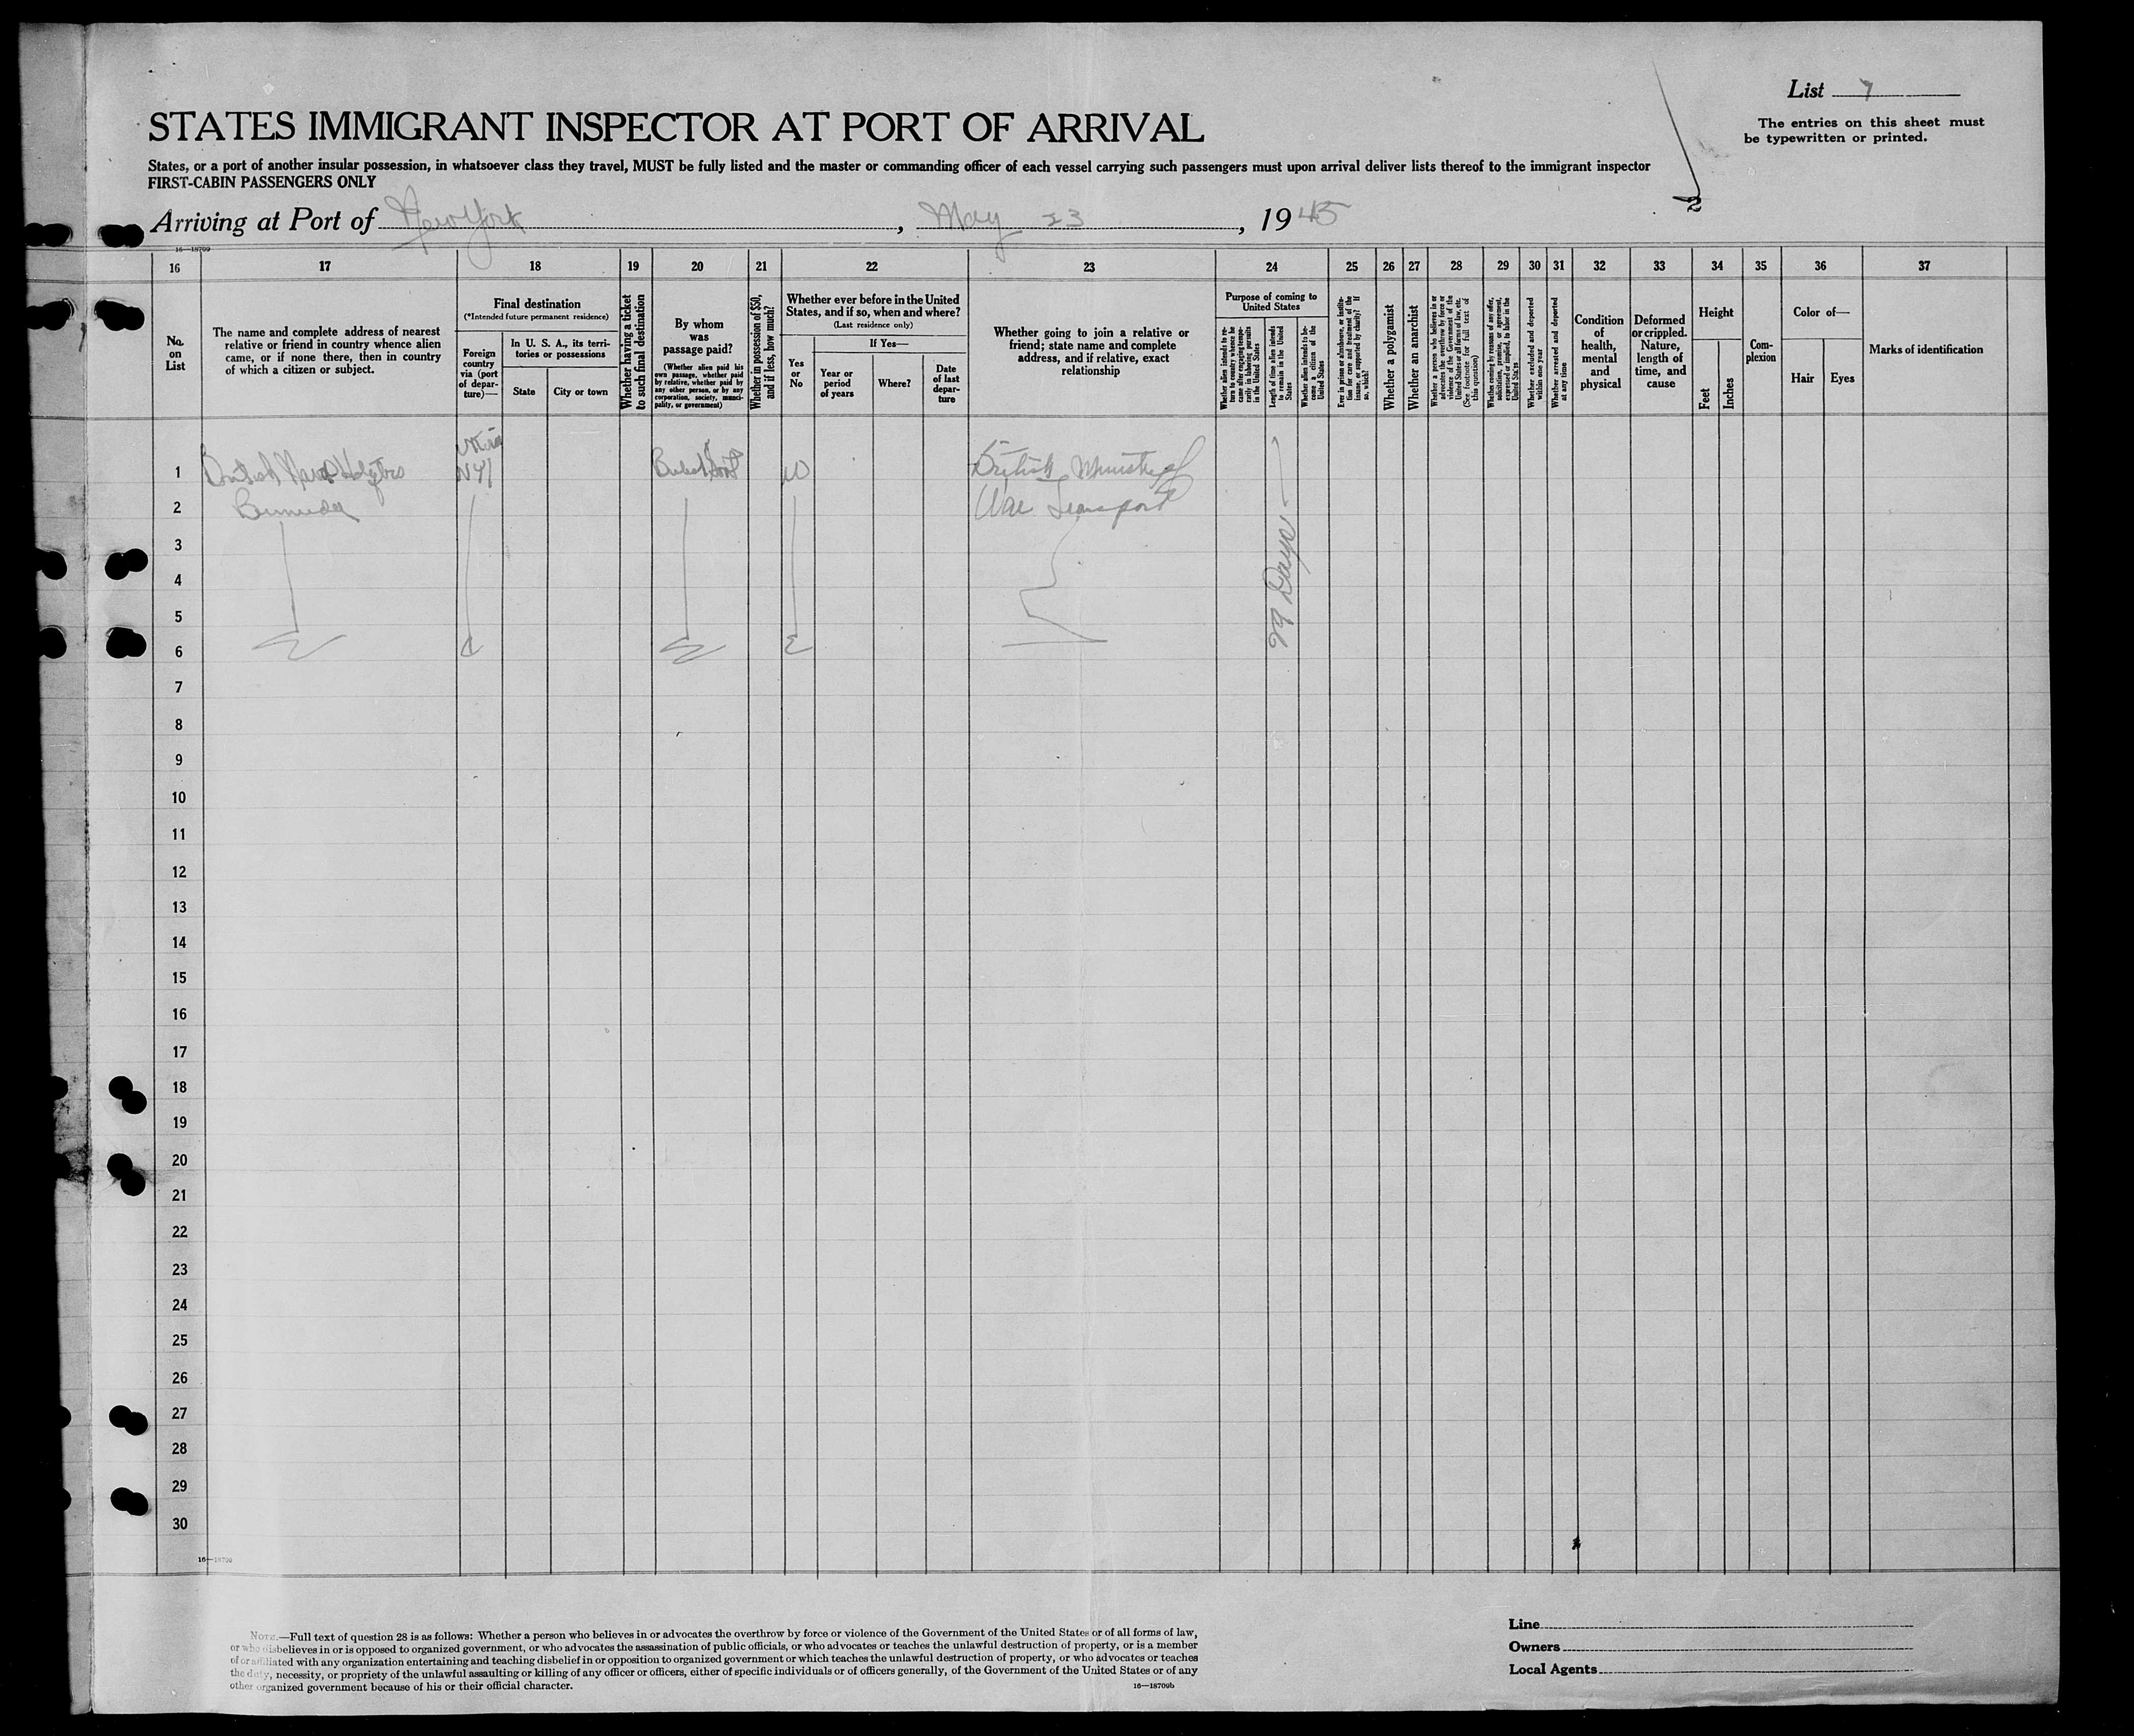 List 7
The entries on this sheet must
be typewritten or printed.
STATES IMMIGRANT INSPECTOR AT PORT OF ARRIVAL
States, or a port of another insular possession, in whatsoever class they travel, MUST be fully listed and the master or commanding officer of each vessel carrying such passengers must upon arrival deliver lists thereof to the immigrant inspector
FIRST-CABIN PASSENGERS ONLY
2
Arriving at Port of New York, May 23, 1945
16—18709
16 17 18 19 20 21 22 23 24 25 26 27 28 29 30 31 32 33 34 35 36 37
No. on List
The name and complete address of nearest
relative or friend in country whence alien
came, or if none there, then in country
of which a citizen or subject.
Final destination
(*Intended future permanent residence)
Foreign
country
via (port
of depar-
ture)—
In U. S. A., its terri-
tories or possessions
State
City or town
Whether having a ticket
to such final destination
By whom
was
passage paid?
(Whether alien paid his
own passage, whether paid
by relative, whether paid by
any other person, or by any
corporation, society, munici-
pality, or government)
Whether in possession of $50,
and if less, how much?
Whether ever before in the United
States, and if so, when and where?
(Last residence only)
Yes
or
No
If Yes—
Year or
period
of years
Where?
Date
of last
depar-
ture
Whether going to join a relative or
friend; state name and complete
address, and if relative, exact
relationship
Purpose of coming to
United States
Whether alien intends to re-
turn to country whence he
came after engaging tempo-
rarily in laboring pursuits
in the United States
Length of time alien intends
to remain in the United
States
Whether alien intends to be-
come a citizen of the
United States
Ever in prison or almshouse, or institu-
tion for care and treatment of the
insane, or supported by charity? If
so, which?
Whether a polygamist
Whether an anarchist
Whether a person who believes in or
advocates the overthrow by force or
violence of the Government of the
United States or all forms of law, etc.
(See footnote for full text of
this question)
Whether coming by reasons of any offer,
solicitation, promise, or agreement,
expressed or implied, to labor in the
United States
Whether excluded and deported
within one year
Whether arrested and deported
at any time
Condition
of
health,
mental
and
physical
Deformed
or crippled.
Nature,
length of
time, and
cause
Height
Feet
Inches
Com-
plexion
Color of—
Hair
Eyes
Marks of identification
1 British Naval Hdqtrs NY British Ministry of
2 Bermuda War Transport
29 Days
3
4
5
6
7
8
9
10
11
12
13
14
15
16
17
18
19
20
21
22
23
24
25
26
27
28
29
30
16—18709
NOTE.—Full text of question 28 is as follows: Whether a person who believes in or advocates the overthrow by force or violence of the Government of the United States or of all forms of law,
or who disbelieves in or is opposed to organized government, or who advocates the assassination of public officials, or who advocates or teaches the unlawful destruction of property, or is a member
of or affiliated with any organization entertaining and teaching disbelief in or opposition to organized government or which teaches the unlawful destruction of property, or who advocates or teaches
the duty, necessity, or propriety of the unlawful assaulting or killing of any officer or officers, either of specific individuals or of officers generally, of the Government of the United States or of any
other organized government because of his or their official character.
16—18709b
Line
Owners
Local Agents